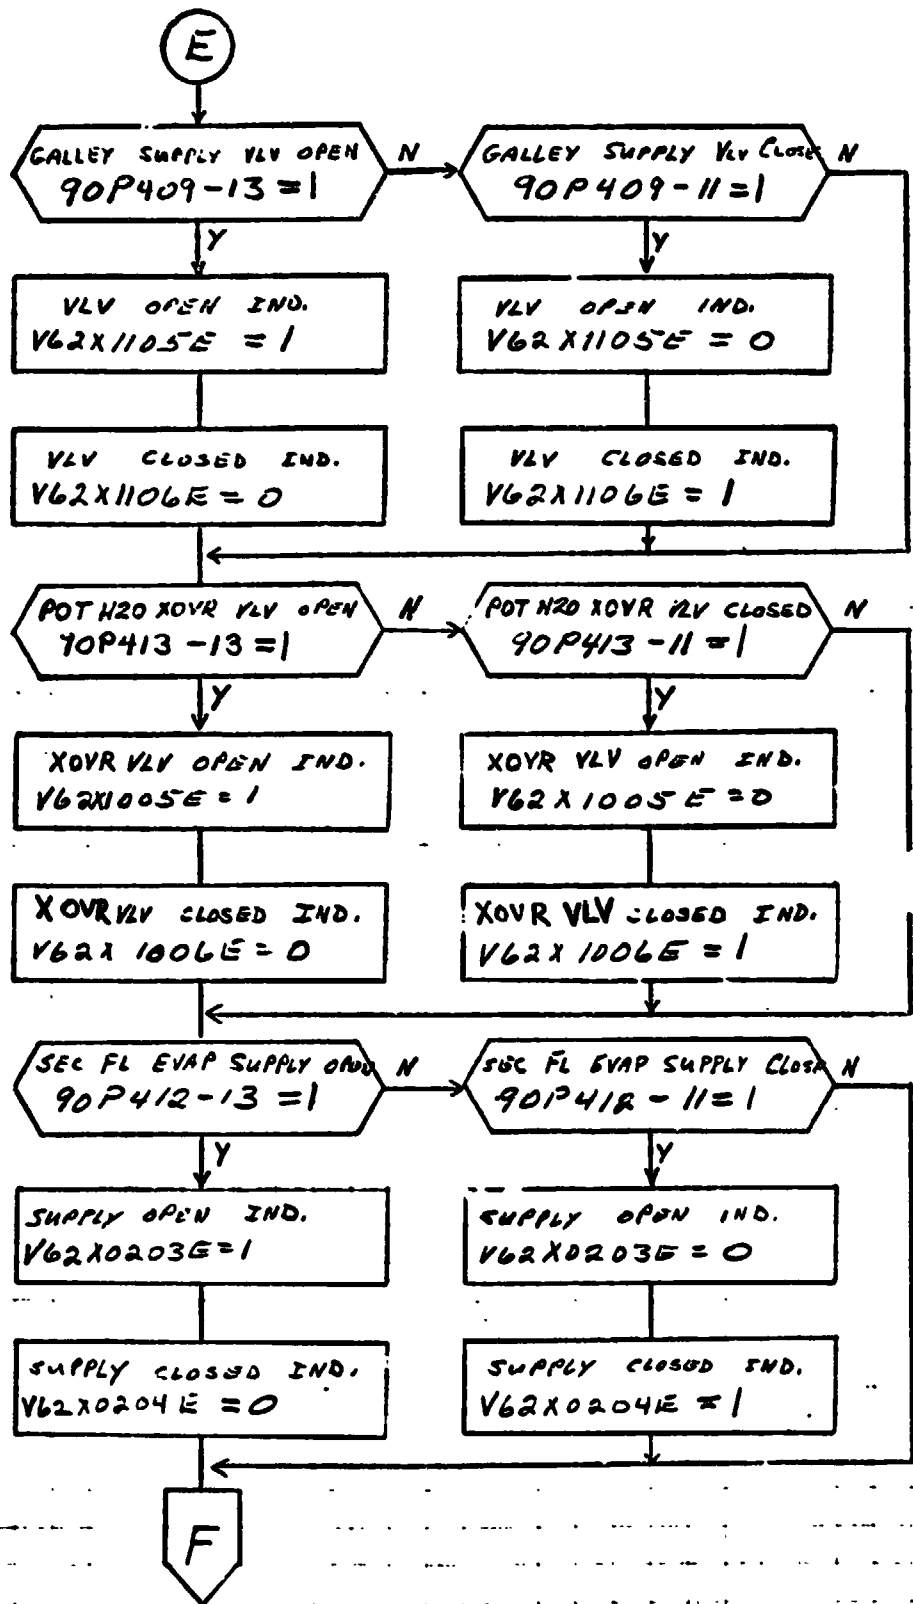 E
GALLEY SUPPLY VLV OPEN
90P409-13=1
N
GALLEY SUPPLY VLV CLOSE
90P409-11=1
N
Y
Y
VLV OPEN IND.
V62X1105E = 1
VLV OPEN IND.
V62X1105E = 0
VLV CLOSED IND.
V62X1106E = 0
VLV CLOSED IND.
V62X1106E = 1
POT H2O XOVR VLV OPEN
90P413-13=1
N
POT H2O XOVR VLV CLOSED
90P413-11=1
N
Y
Y
XOVR VLV OPEN IND.
V62X1005E = 1
XOVR VLV OPEN IND.
V62X1005E = 0
XOVR VLV CLOSED IND.
V62X1006E = 0
XOVR VLV CLOSED IND.
V62X1006E = 1
SEC FL EVAP SUPPLY OPEN
90P412-13=1
N
SEC FL EVAP SUPPLY CLOSE
90P412-11=1
N
Y
Y
SUPPLY OPEN IND.
V62X0203E=1
SUPPLY OPEN IND.
V62X0203E = 0
SUPPLY CLOSED IND.
V62X0204E = 0
SUPPLY CLOSED IND.
V62X0204E = 1
F